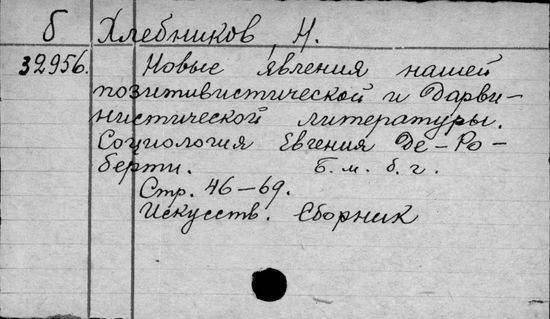 б Хлебников, Н.
32956. Новые явления нашей
позитивистической и Дарви-
нистической литературы.
Социология Евгения Де-Ро-
берти. Б. м. б. г.
Стр. 46-69.
Искусств. Сборник